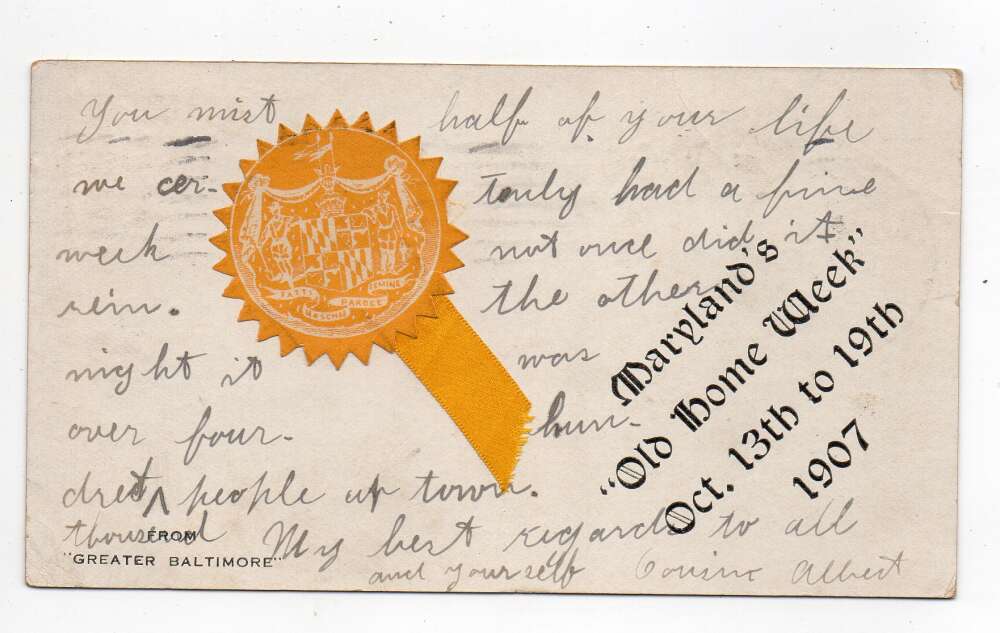 You mist half of your life
we cer- tanly had a fine
week not once did it
rein. the other
night it was
over four- hun-
dret ^ people up town.
thousend My best regards to all
and yourself Cousine Albert
FATTI MASCHII PAROLE FEMINE
Maryland's
"Old Home Week"
Oct. 13th to 19th
1907
FROM
"GREATER BALTIMORE"